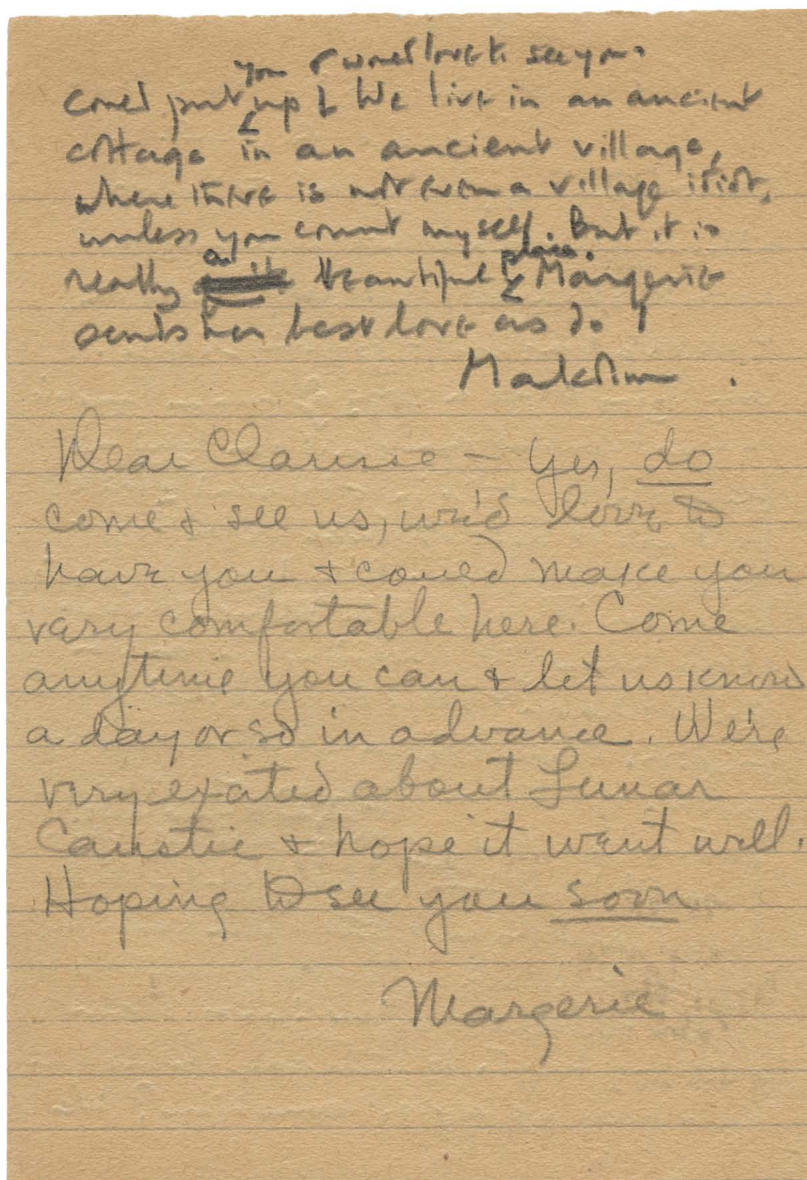 you & would love to see you.
could put up & We live in an ancient
cottage in an ancient village,
where there is not even a village idiot,
unless you count myself. But it is
a place.
really beautiful Margerie
sends her best love as do I
Malcolm.
Dear Clarisse – Yes, do
come & see us, we'd love to
have you & could make you
very comfortable here. Come
anytime you can & let us know
a day or so in advance. We're
very excited about Lunar
Caustic & hope it went well.
Hoping to see you soon
Margerie